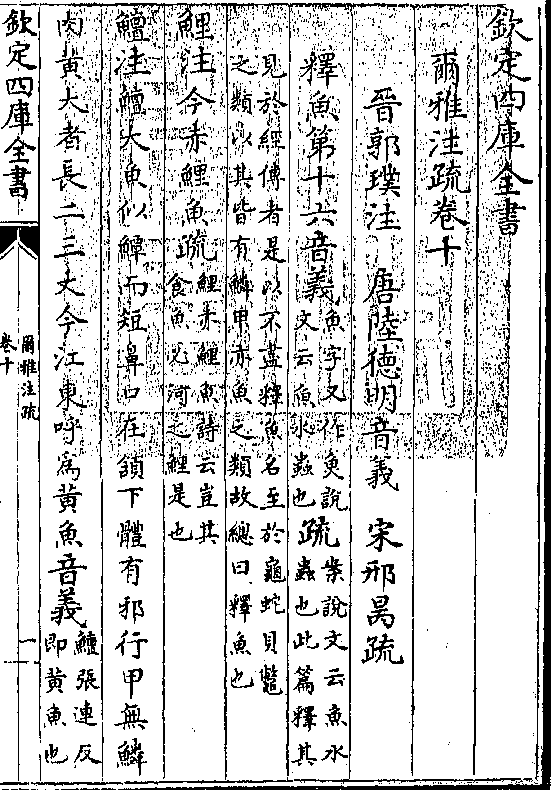 欽定四庫全書
爾雅注疏卷十
晉郭璞注 唐陸德明音義 宋邢昺疏
釋魚第十六音義魚字又作𩵋說文云魚水蟲也疏案說文云魚水蟲也此篇釋其
見於經傳者是以不盡釋魚名至於龜蛇貝鼈
之類以其皆有鱗甲亦魚之類故總曰釋魚也
鯉注今赤鯉魚疏鯉赤鯉魚詩云豈其食魚必河之鯉是也
鱣注鱣大魚似鱏而短鼻口在頷下體有邪行甲無鱗
肉黃大者長二三丈今江東呼爲黃魚音義鱣張連反即黃魚也
欽定四庫全書
爾雅注疏
卷十
一